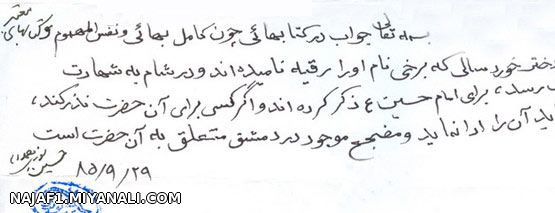 بسمه تعالی جواب در کتابهائی چون کامل بهائی و نفس المهموم و کتابهای معتبر
دختر خورد سالی که برخی نام او را رقیه نامیده اند و در شام به شهادت
رسد، برای امام حسین ع ذکر کرده اند و اگر کسی برای آن حضرت نذر کند،
ید آن را ادا نماید و مضجع موجود در دمشق متعلق به آن حضرت است
حسین نوری همدانی
۸۵/۹/۲۹
NAJAF1.MIYANALI.COM